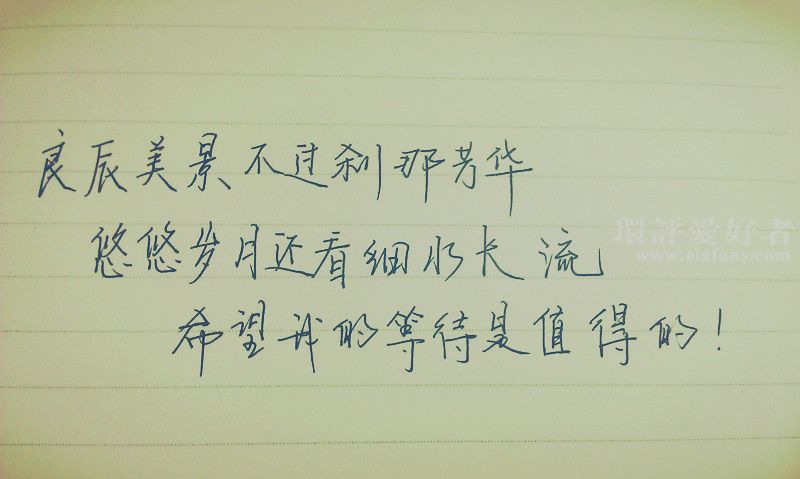 良辰美景不过刹那芳华
悠悠岁月还看细水长流
希望我的等待是值得的！
環評愛好者
www.eiafans.com